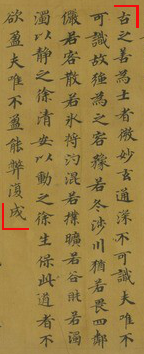 古之善為士者微妙玄通深不可識夫唯不
可識故強為之容豫若冬涉川猶若畏四鄰
儼若客散若氷將汋混若樸曠若谷若濁
濁以静之徐清安以動之徐生保此道者不
欲盈夫唯不盈能弊復成